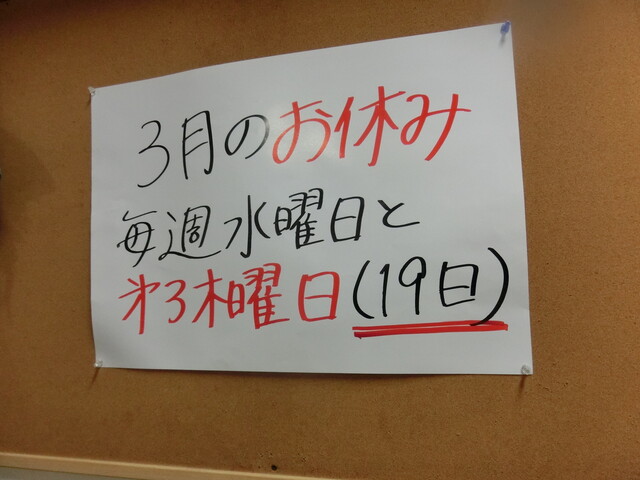 3月のお休み
毎週水曜日と
㐧3木曜日(19日)